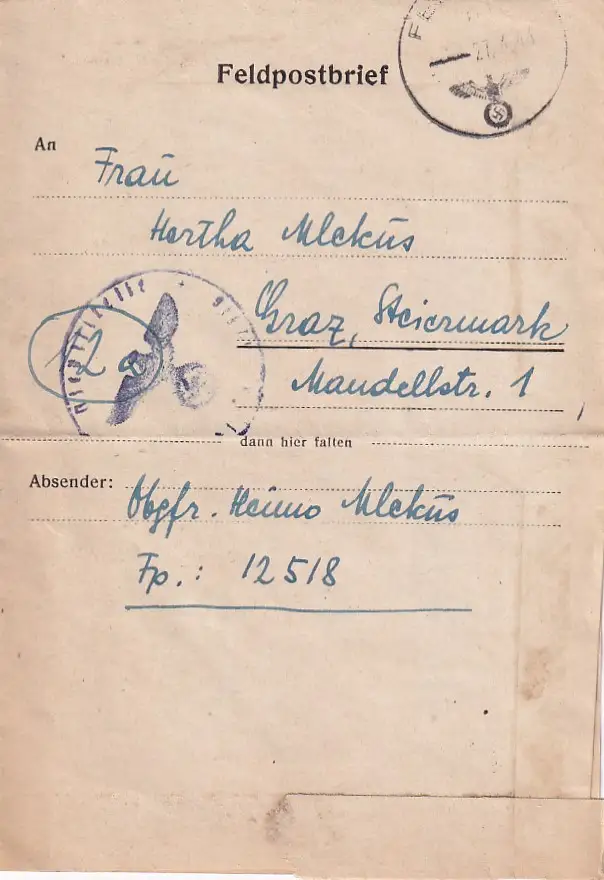 Feldpostbrief
An
Frau
Hertha Mlekus
12a
Graz, Steiermark
Mandellstr. 1
dann hier falten
Absender: Obgfr. Heimo Mlekus
Fp.: 12518